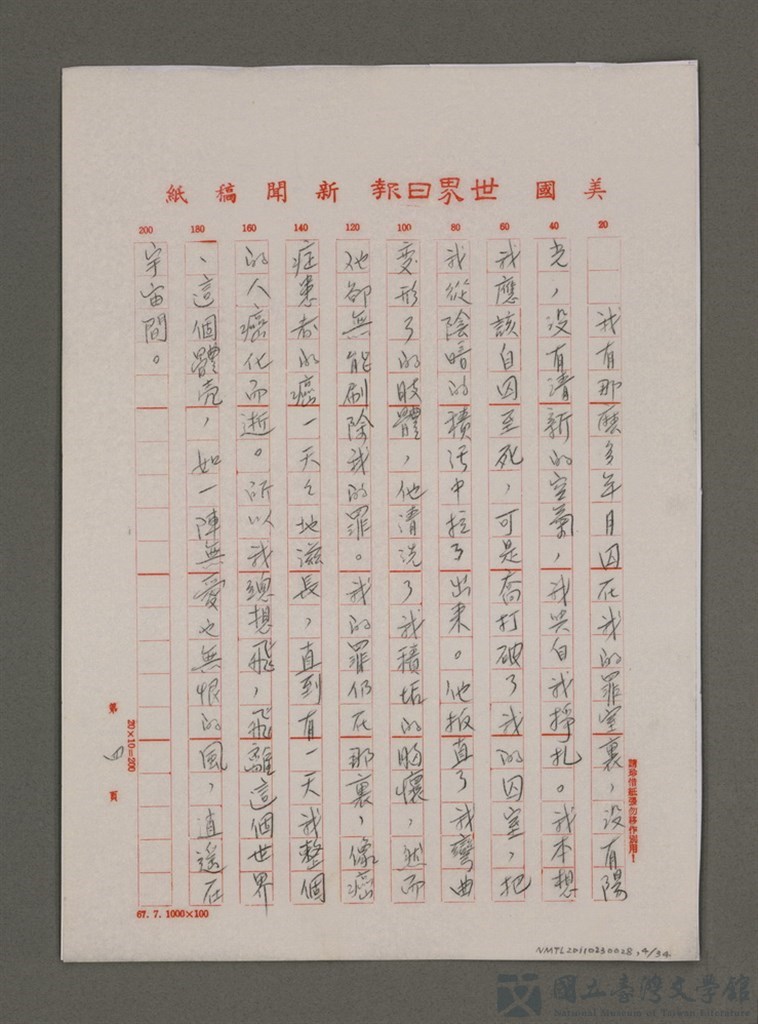 美國世界日報新聞稿紙
20
40
60
80
100
120
140
160
180
200
我有那麼多年月囚在我的罪室裏，沒有陽
光，沒有清新的空氣，我獨自我掙扎。我本想
我應該自囚至死，可是喬打破了我的囚室，把
我從陰暗的積污中拉了出来。他扳直了我彎曲
变形了的肢體，他清洗了我積垢的胸懷，然而
他卻無能刪除我的罪。我的罪仍在那裏，像癌
症患者的癌一天々地滋長，直到有一天我整個
的人癌化而逝。所以我總想飛，飛離這個世界
、這個體壳，如一陣無愛也無恨的風，逍遙在
宇宙間。
請珍惜紙張勿移作別用！
第四頁
20×10=200
67. 7. 1000×100
NMTL20110230028, 4/34
國立臺灣文學館
National Museum of Taiwan Literature